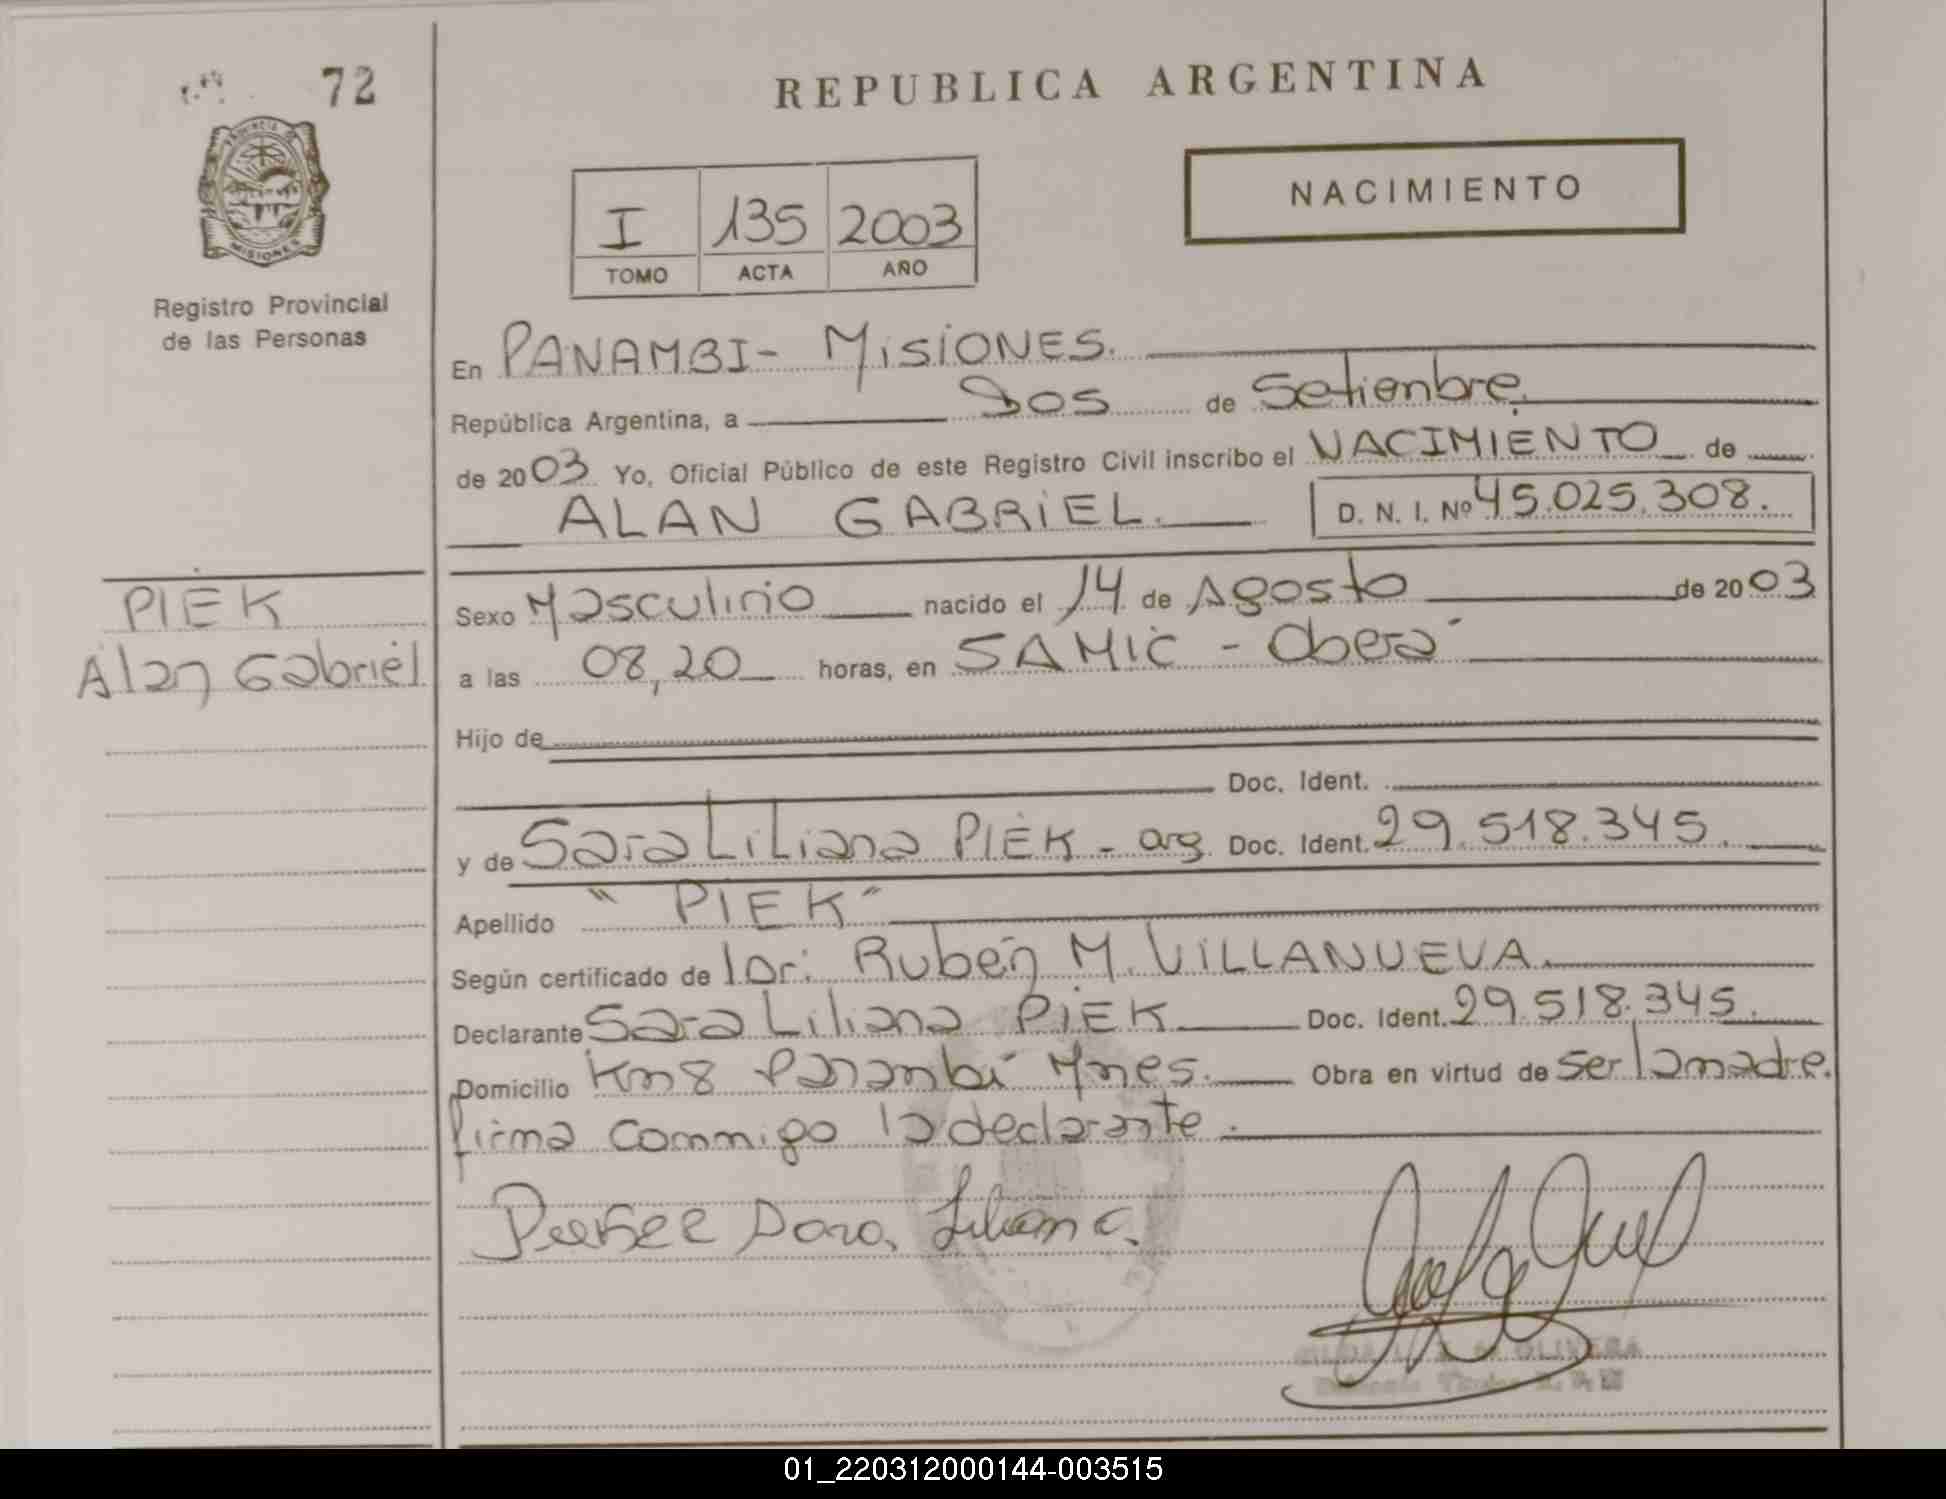 72
PROVINCIA DE
MISIONES
Registro Provincial
de las Personas
REPUBLICA ARGENTINA
NACIMIENTO
I 135 2003
TOMO ACTA AÑO
En PANAMBI- MISIONES.
República Argentina, a Dos de Setienbre.
de 2003 Yo, Oficial Público de este Registro Civil inscribo el NACIMIENTO de
ALAN GABRIEL. D. N. I. Nº 45.025.308.
PIEK
Alan Gabriel
Sexo Masculino nacido el 14 de Agosto de 2003
a las 08,20 horas, en SAMIC - Oberá
Hijo de
Doc. Ident.
y de Sara Liliana PIEK - arg Doc. Ident. 29.518.345.
Apellido "PIEK"
Según certificado de Dr: Rubén M. VILLANUEVA.
Declarante Sara Liliana PIEK Doc. Ident. 29.518.345.
Domicilio Km8 Panambí Mnes. Obra en virtud de ser la madre.
firma conmigo la declarante.
Liliana.
OLIVERA
01_220312000144-003515